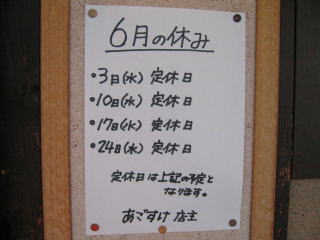 6月の休み
•3日(水) 定休日
•10日(水) 定休日
•17日(水) 定休日
•24日(水) 定休日
定休日は上記の予定と
なります。
あごすけ 店主